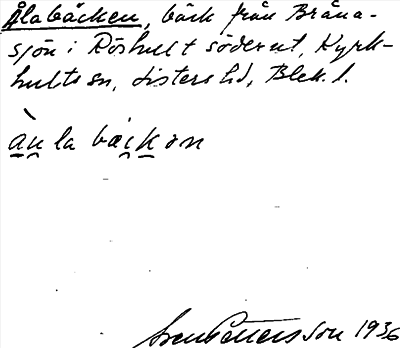 Ålabäcken, bäck från Bråna-
sjön i Röshult söderut, Kyrk-
hults sn, Listers hd, Blek. l.
àu̯la bæi̯kən
Sven Pettersson 1936